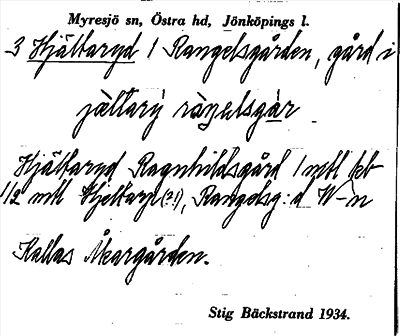 Myresjö sn, Östra hd, Jönköpings l.
3 Hjältaryd / Rangelsgården, gård i
jältarý ràŋelsgàr
Hjältaryd Ragnhildsgård 1 mtl jb
1/2 mtl Hjeltaryd (?!), Rangelsg:d W-n
Kallas Åkargården.
Stig Bäckstrand 1934.